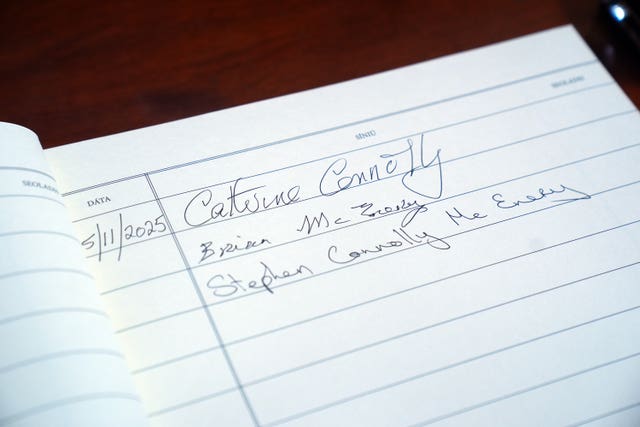 SEOLADH
DATA
SÍNIÚ
SEOLADH
5/11/2025
Catherine Connolly
Brian McEnery
Stephen Connolly Mc Enery